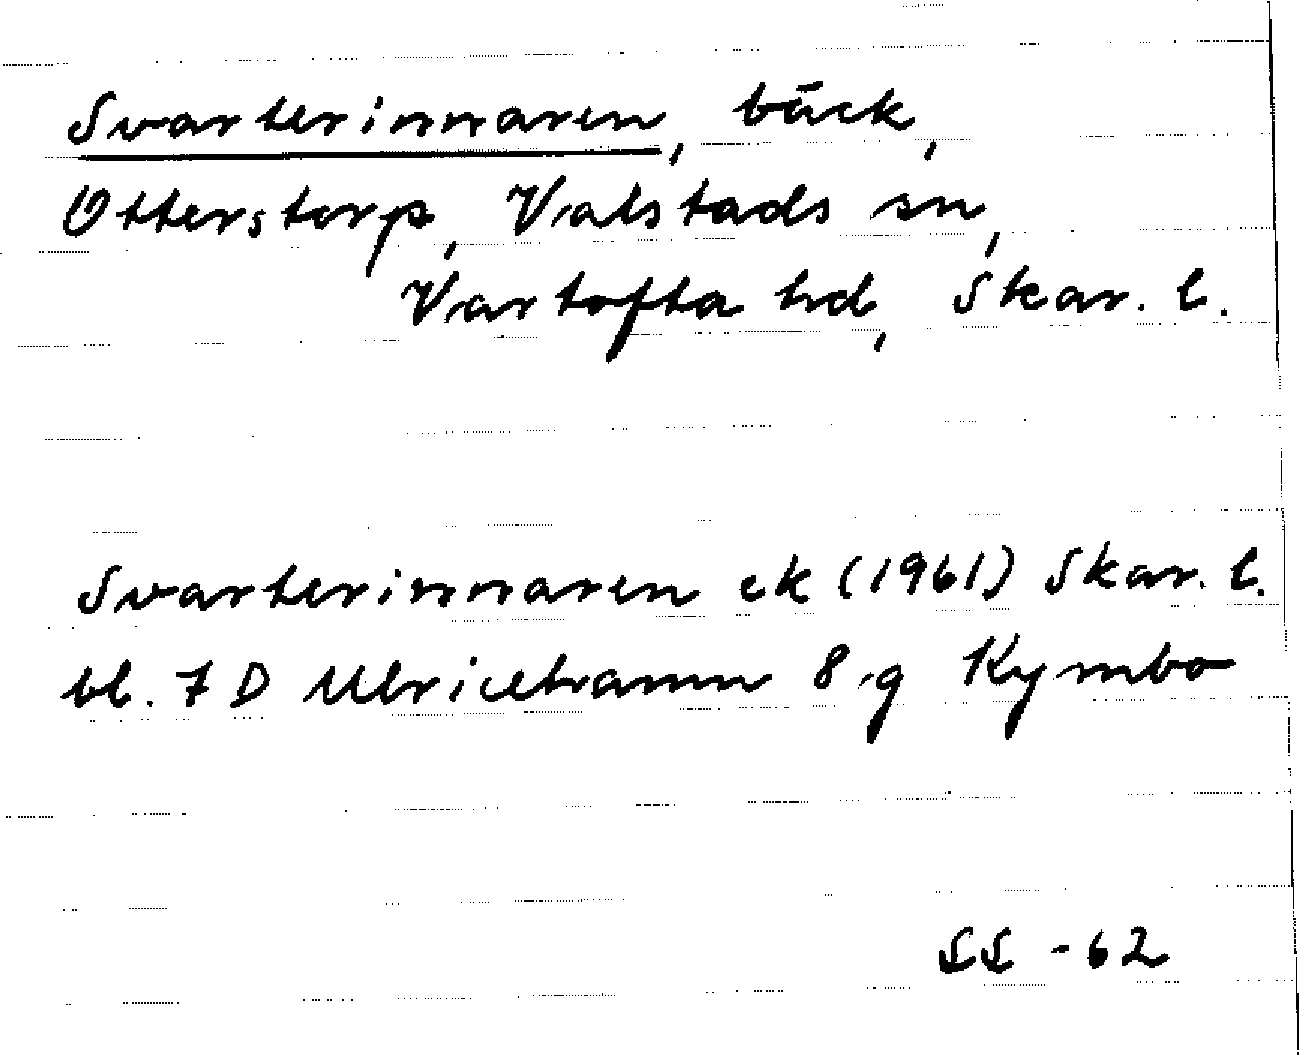 Svarterinnaren, bäck,
Otterstorp, Valstads sn,
Vartofta hd, Skar. l.
Svarterinnaren ek (1961) Skar. l.
bl. 7 D Ulricehamn 8 g Kymbo
LL -62